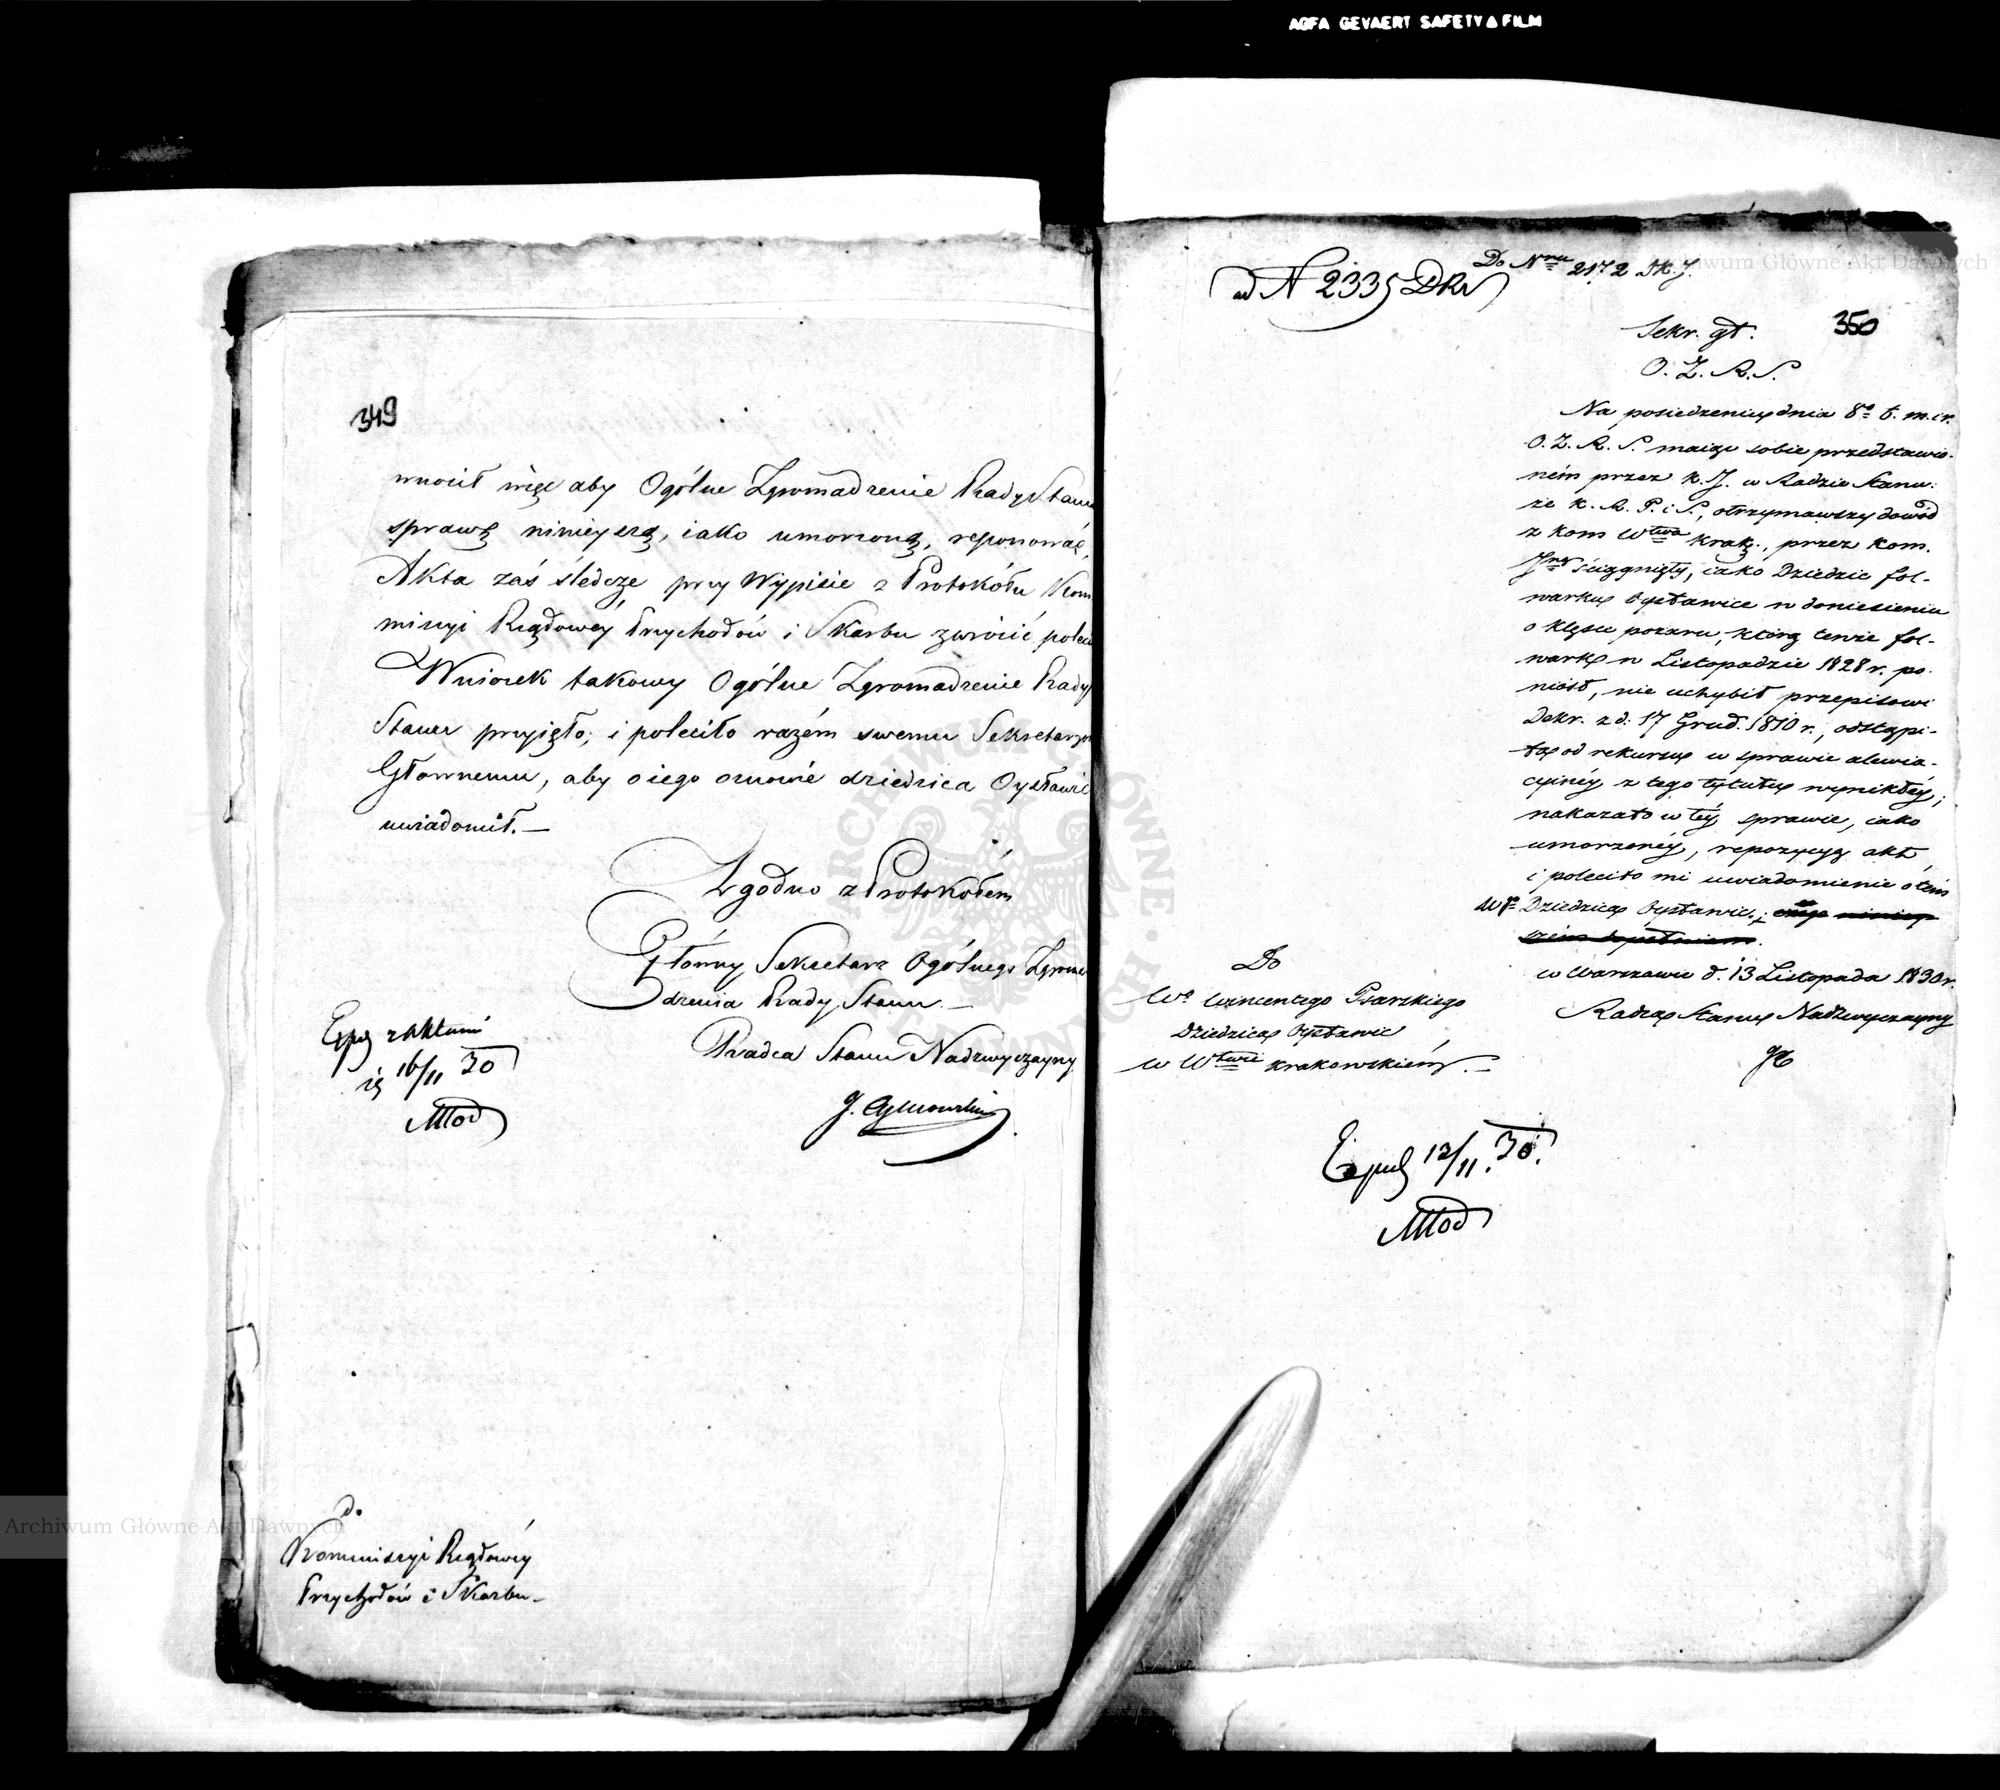 AGFA GEVAERT SAFETY FILM
349
wnosił więc aby Ogólne Zgromadzenie Rady Stanu
sprawę ninieyszą, iako umorzoną, reponować,
Akta zaś śledcze przy Wypisie z Protokółu Kom
missyi Rządowey Przychodów i Skarbu zwrócić poleci
Wniosek takowy Ogólne Zgromadzenie Rady
Stanu przyięło; i poleciło razém swemu Sekretarzowi
Głównemu, aby o iego osnowie dziedzica Oysławic
uwiadomił. —
Zgodno z Protokółem
Główny Sekretarz Ogólnego Zgroma
dzenia Rady Stanu. —
Radca Stanu Nadzwyczayny
Exp z aktami
16/11 30
Młod
do
Kommissyi Rządowey
Przychodów i Skarbu. —
ad N 2335 DRS
Do Nru 2172
350
Sekr. gł.
O. Z. R. S.
Na posiedzeniu dnia 8o b. m. i r.
O. Z. R. S. maiąc sobie przedstawio-
ném przez K. J. w Radzie Stanu:
że K. R. P. i S., otrzymawszy dowód
z Kom Wtwa Krak., przez Kom.
ściągnięty, iako Dziedzic fol-
warku Oysławice w doniesieniu
o klęsce pożaru, którą tenże fol-
wark w Listopadzie 1828 r. po-
niósł, nie uchybił przepisowi
Dekr. z d: 17 Grud. 1810 r., odstąpi-
ła od rekursu w sprawie alewia-
cyinéy z tego tytułu wynikłéy;
nakazało w téy sprawie, iako
umorzonéy, repozycyą akt,
i poleciło mi uwiadomienie o tém
WPa Dziedzica Oysławic;
w Warszawie d. 13 Listopada 1830 r.
Radca Stanu Nadzwyczayny
Do
Wo Wincentego Psarskiego
Dziedzica Oysławic
w Wtwie Krakowskiém. —
Exped 13/11. 30.
Młod
do
Archiwum Główne Akt Dawnych
Archiwum Główne Akt Dawnych
ARCHIWUM GŁÓWNE AKT DAWNYCH